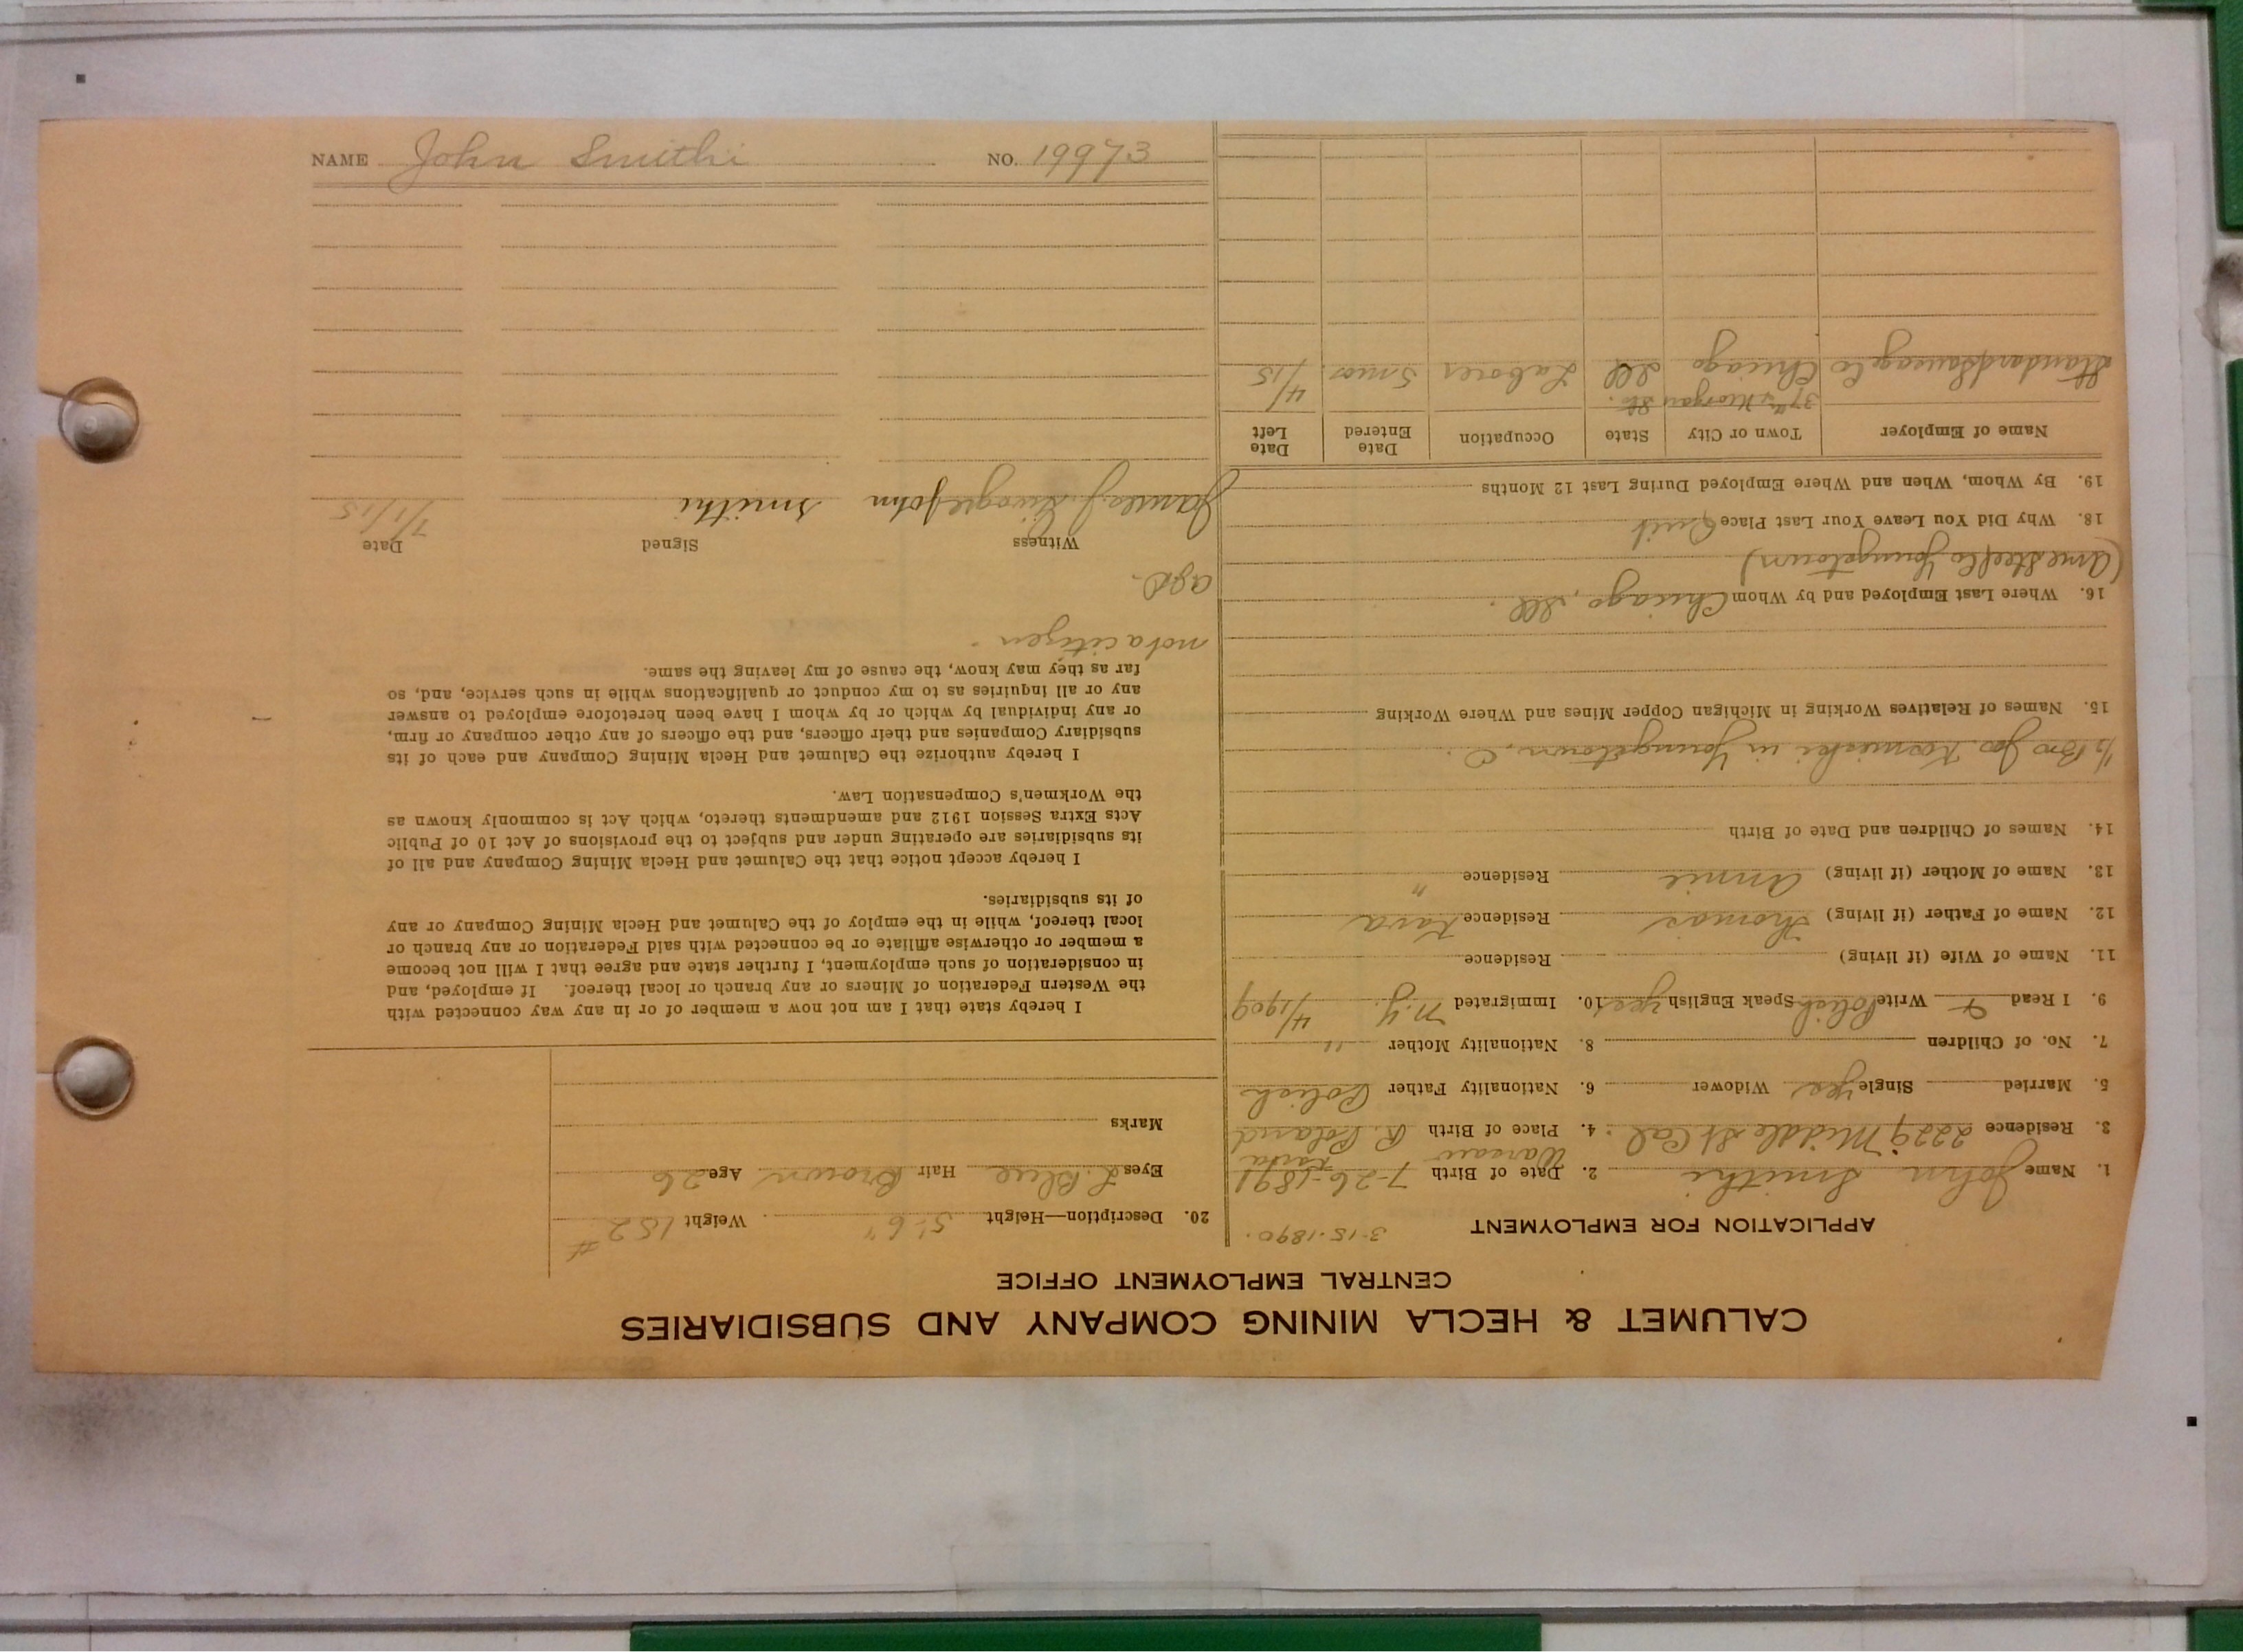 CALUMET & HECLA MINING COMPANY AND SUBSIDIARIES
CENTRAL EMPLOYMENT OFFICE
APPLICATION FOR EMPLOYMENT 3-15-1890.
1. Name John Smithi 2. Date of Birth 7-26-1891
Warsaw
3. Residence 2229 Middle St Cal. 4. Place of Birth R. Poland
5. Married Single yes Widower 6. Nationality Father Polish
7. No. of Children 8. Nationality Mother "
9. I Read & Write Polish Speak English yes 10. Immigrated N.Y. 4/1909
11. Name of Wife (if living) Residence
12. Name of Father (if living) Thomas Residence
13. Name of Mother (if living) Annie Residence "
14. Names of Children and Date of Birth
½ Bro Jos. in Youngstown, O.
15. Names of Relatives Working in Michigan Copper Mines and Where Working
16. Where Last Employed and by Whom Chicago, Ill.
Steel Co Youngstown)
18. Why Did You Leave Your Last Place Quit
19. By Whom, When and Where Employed During Last 12 Months
Name of Employer Town or City State Occupation Date Entered Date Left
37th & Morgan St.
Standard Sausage Co Chicago Ill Laborer 5 mos. 4/15
20. Description—Height 5'-6" Weight 152#
Eyes L. Blue Hair Brown Age 26
Marks
I hereby state that I am not now a member of or in any way connected with
the Western Federation of Miners or any branch or local thereof. If employed, and
in consideration of such employment, I further state and agree that I will not become
a member or otherwise affiliate or be connected with said Federation or any branch or
local thereof, while in the employ of the Calumet and Hecla Mining Company or any
of its subsidiaries.
I hereby accept notice that the Calumet and Hecla Mining Company and all of
its subsidiaries are operating under and subject to the provisions of Act 10 of Public
Acts Extra Session 1912 and amendments thereto, which Act is commonly known as
the Workmen's Compensation Law.
I hereby authorize the Calumet and Hecla Mining Company and each of its
subsidiary Companies and their officers, and the officers of any other company or firm,
or any individual by which or by whom I have been heretofore employed to answer
any or all inquiries as to my conduct or qualifications while in such service, and, so
far as they may know, the cause of my leaving the same.
not a citizen.
Witness Signed Date
James J. John Smithi 7/1/15
NAME John Smithi NO. 19973